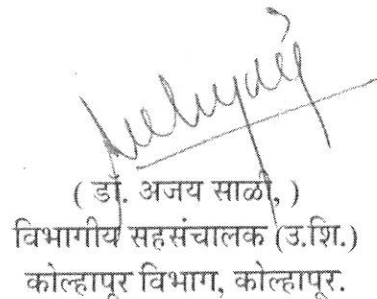 ( डॉ. अजय साळी, )
विभागीय सहसंचालक (उ.शि.)
कोल्हापूर विभाग, कोल्हापूर.